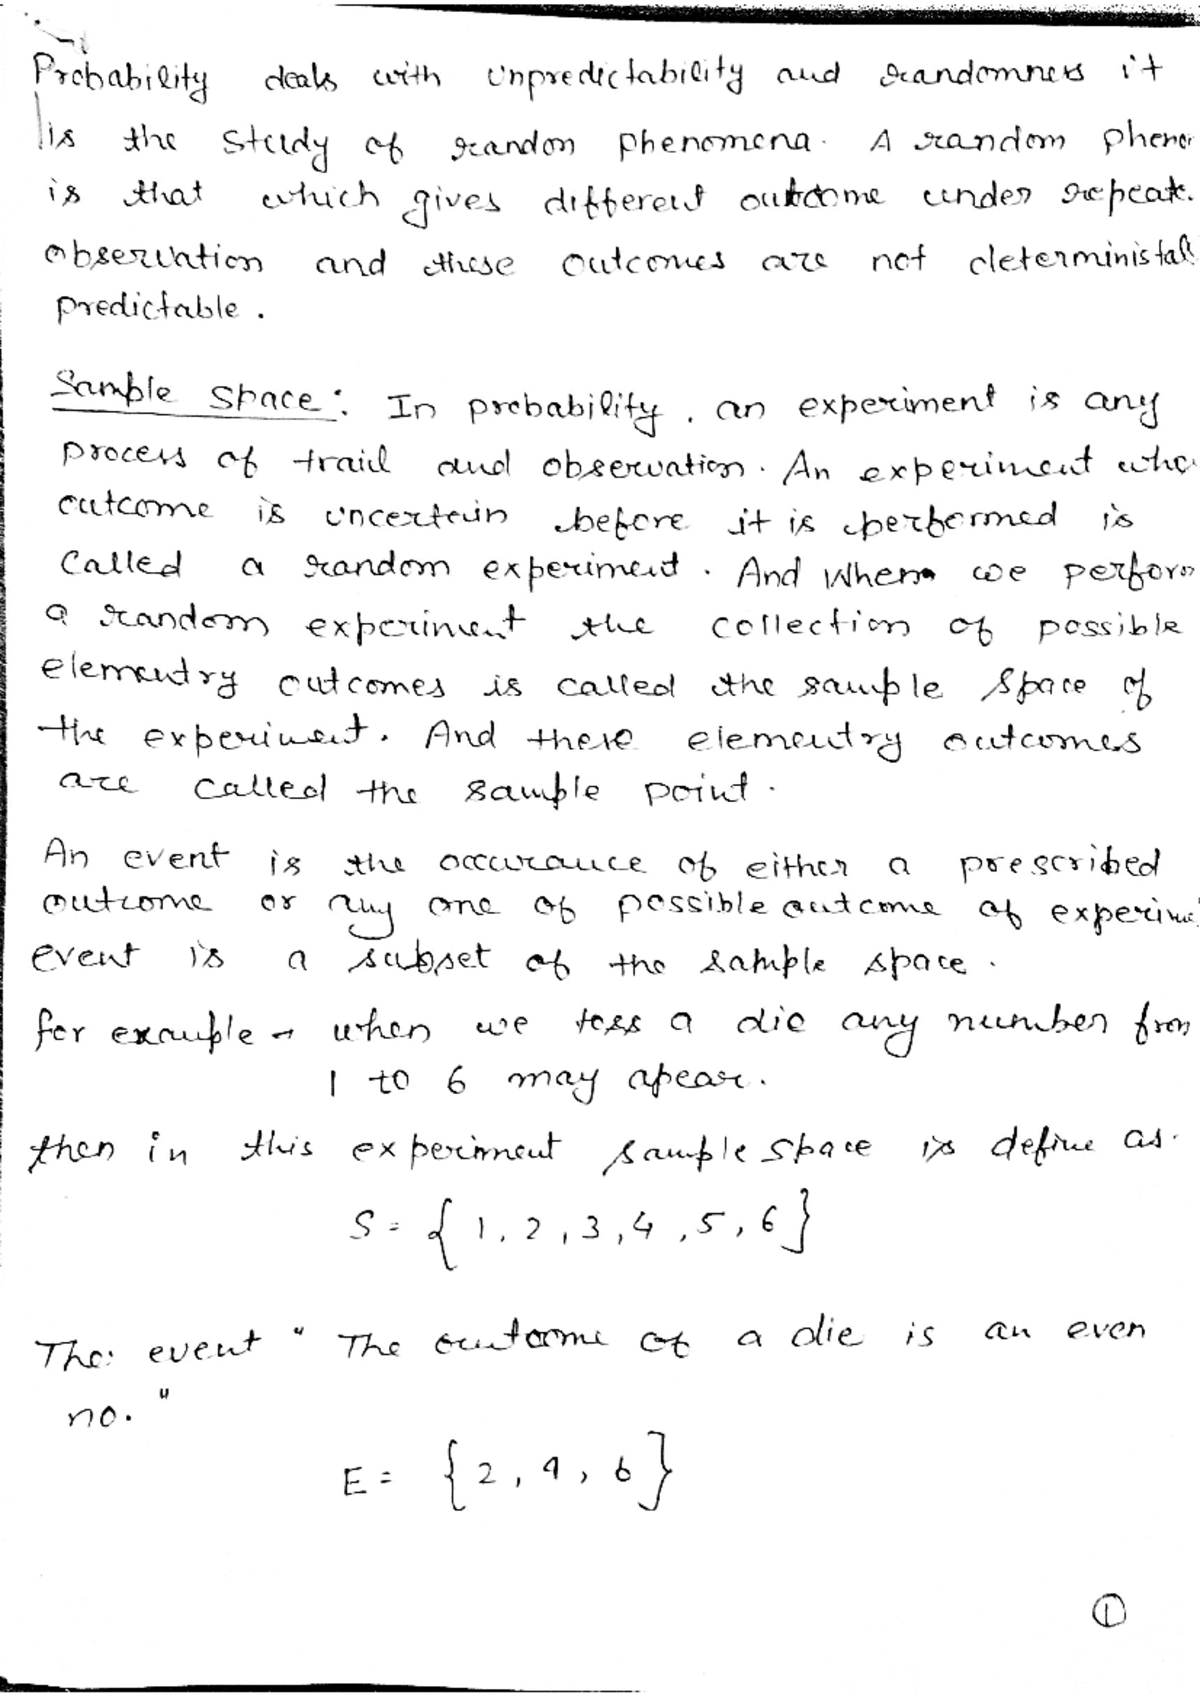 Probability deals with unpredictability and randomness it
is the study of random phenomena. A random phenor
is that which gives different outcome under repeate.
observation and these outcomes are not deterministall
predictable.
Sample space: In probability, an experiment is any
process of trail and observation. An experiment who
outcome is uncertain before it is performed is
Called a random experiment. And When we perform
a random experiment the collection of possible
elementry outcomes is called the sample space of
the experiment. And these elementry outcomes
are called the sample point.
An event is the occurance of either a prescribed
outcome or any one of possible outcome of experime
event is a subset of the sample space.
for example → when we toss a die any number from
1 to 6 may apear.
then in this experiment sample space is define as.
S = { 1, 2, 3, 4, 5, 6 }
The: event " The outcome of a die is an even
no. "
E = { 2, 4, 6 }
1